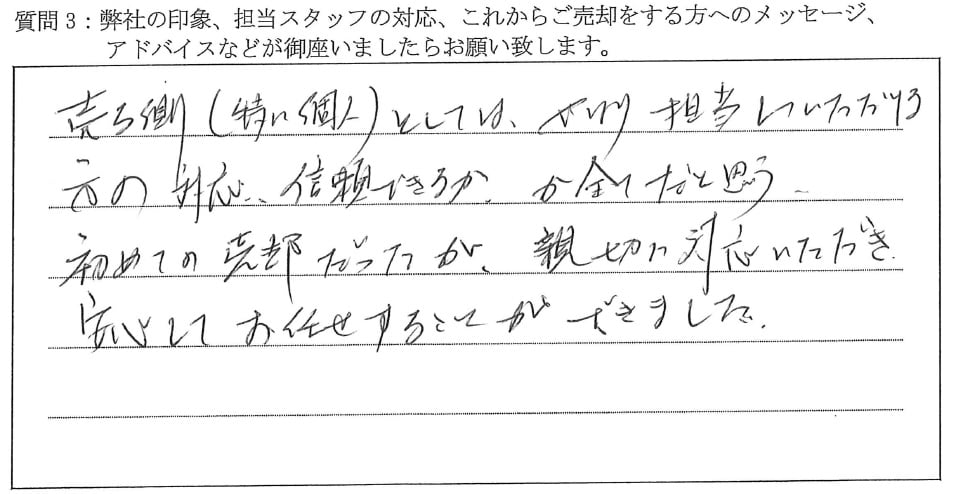 質問3：弊社の印象、担当スタッフの対応、これからご売却をする方へのメッセージ、
アドバイスなどが御座いましたらお願い致します。
売る側(特に個人)としては、やはり担当していただける
方の対応、信頼できるか、が全てだと思う、
初めての売却だったが、親切に対応いただき、
安心してお任せすることができました。